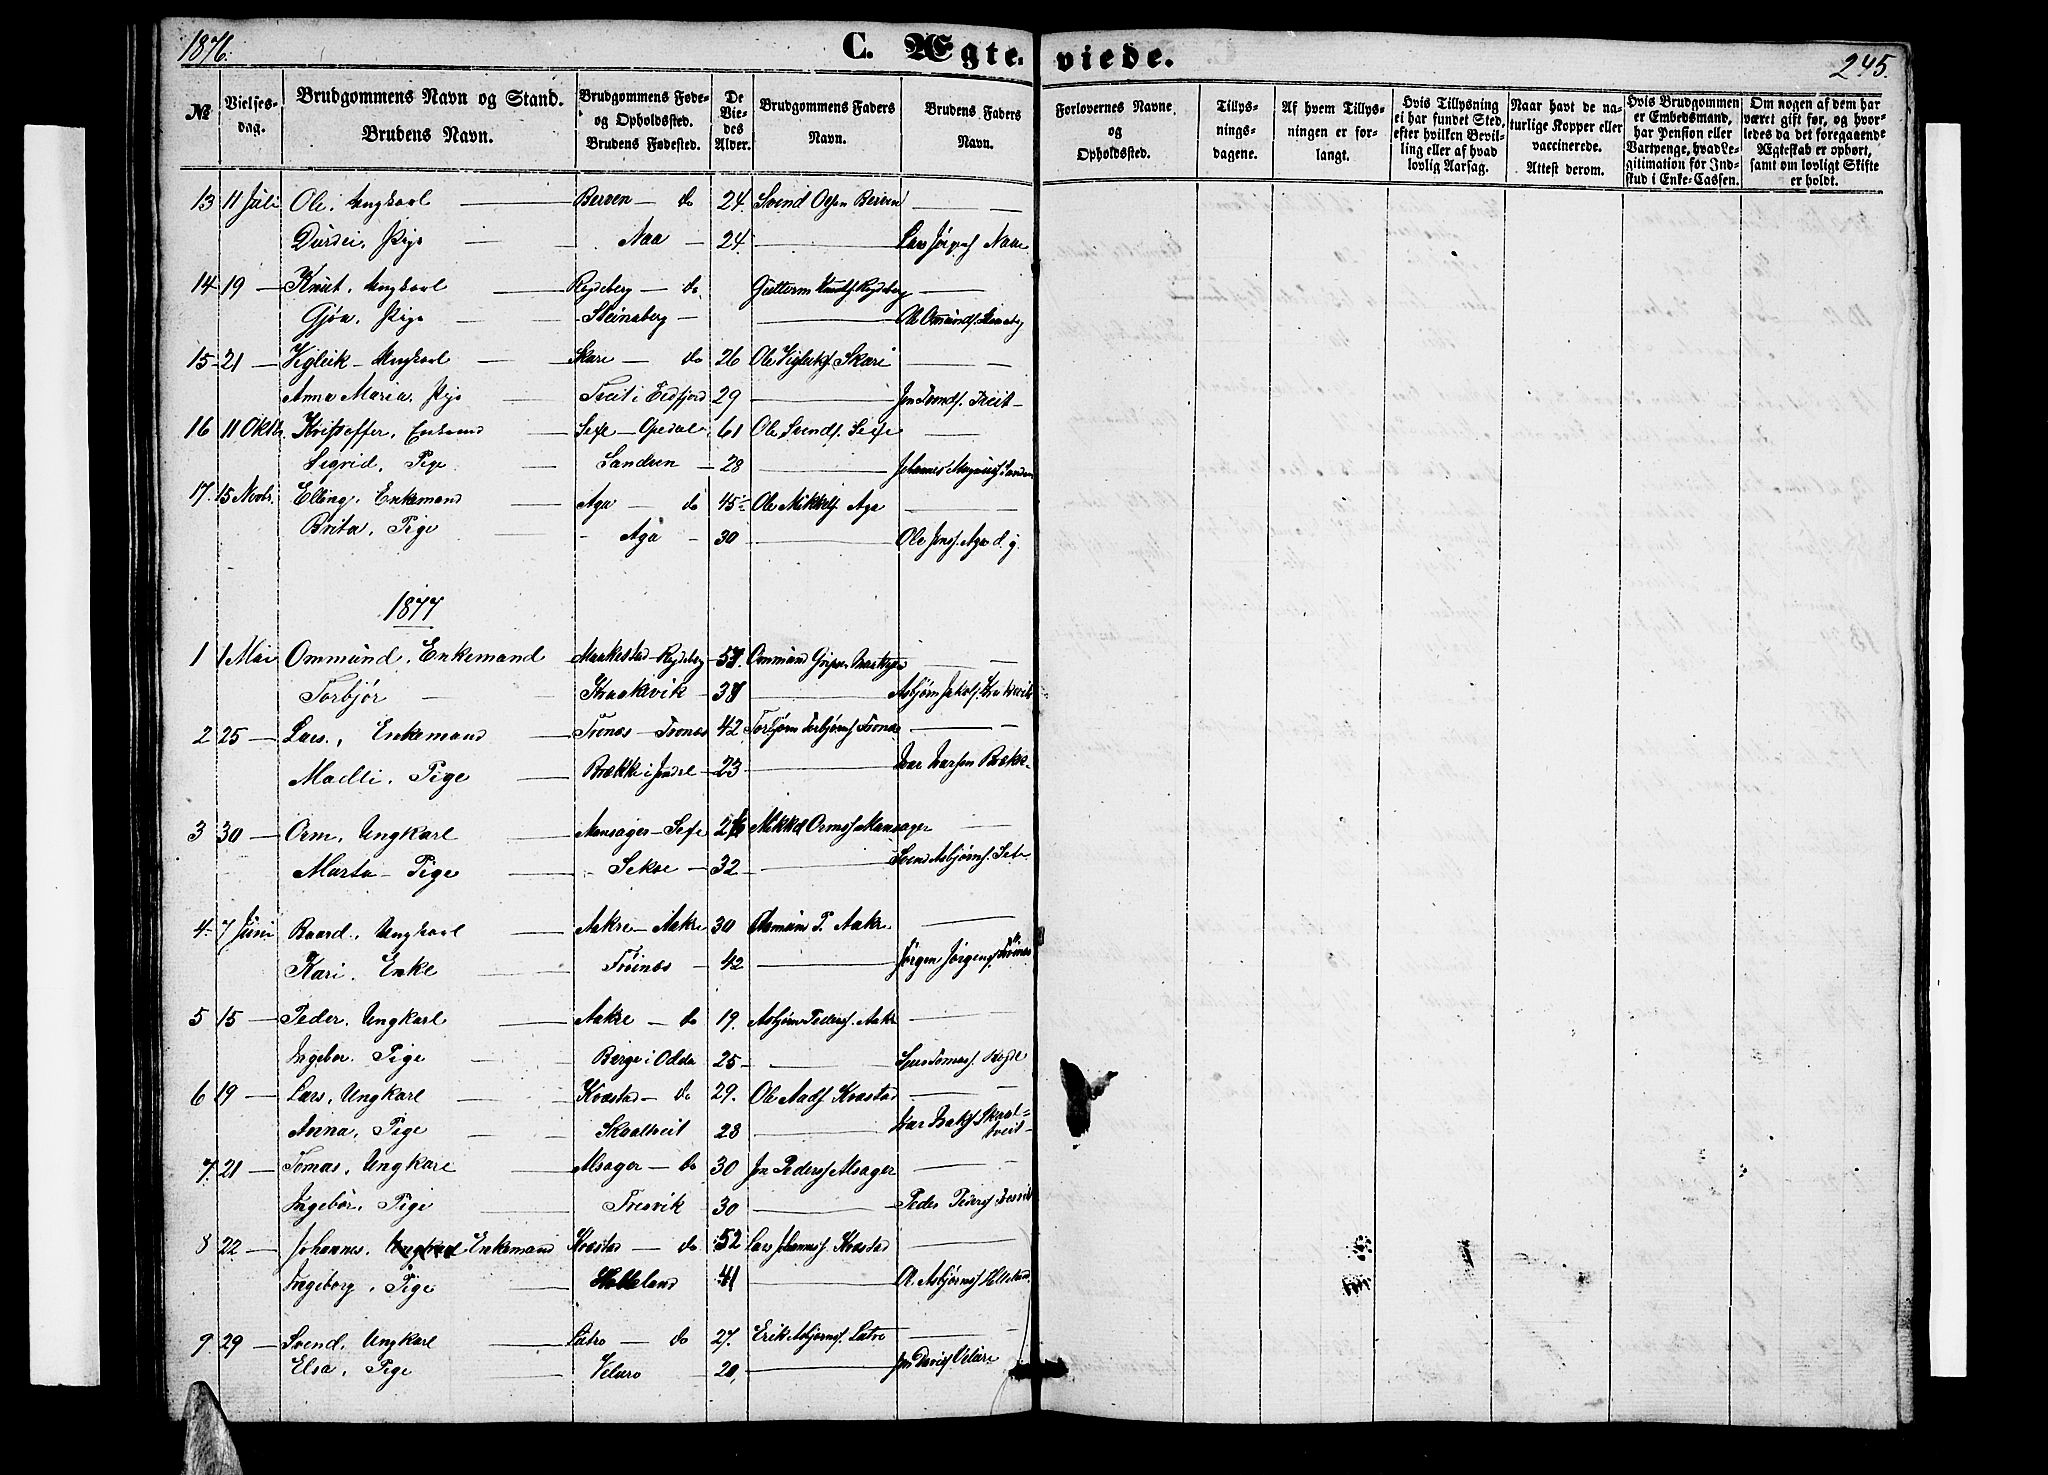 1876.
C. Ægteviede.
245.
№
Vielses-dag.
Brudgommens Navn og Stand.
Brudens Navn.
Brudgommens Føde- og Opholdssted.
Brudens Fødested.
De Viedes Alder.
Brudgommens Faders Navn.
Brudens Faders Navn.
Forlovernes Navne og Opholdssted.
Tillysningsdagene.
Af hvem Tillysningen er forlangt.
Hvis Tillysning ei har fundet Sted, efter hvilken Bevilling eller af hvad lovlig Aarsag.
Naar havt de naturlige Kopper eller vaccinerede. Attest derom.
Hvis Brudgommen er Embedsmand, har Pension eller Vartpenge, hvad Legitimation for Indskud i Enke-Cassen.
Om nogen af dem har været gift før, og hvorledes da det foregaaende Ægteskab er ophørt, samt om lovligt Skifte er holdt.
13 11 Juli Ole, Ungkarl — Berven — do 24. Svend Olsen Berven —
Durdei, Pige — Naa — 24 — Lars Naae
14 19 — Knut, Ungkarl — Rogdeberg — do Guttorm Knuts. —
Gjøa, Pige — Steinaberg — — Ole Omunds.
15 21 — Vigleik Ungkarl — Skare — do 26 Ole Vigleiks. Skare —
Anna Maria, Pige Treit i Eidfjord 29 — Jon Treit
16 11 Oktbr. Kristoffer, Enkemand Sexe — Opedal 61 Ole Svends. Sexe —
Sigrid, Pige — Sandven — 28 — Johannes Sandven
17. 15 Novbr. Elling, Enkemand — Aga — do 45 Ole Mikkels. Aga —
Brita, Pige — Aga — 30 — Ole Jons. Aga d. y.
1877
1 1 Mai Ommund, Enkemand Maakestad — Rogdeberg —
Torbjør — Kraakevik — — Asbjørn
2 25 — Lars, Enkemand — Tronæs — Tronæs 42 Torbjørn Torbjørns. Tronæs —
Madli, Pige — Bække i Jondal — 23 — Ivar Ivarsen Bække
3 30 — Orm, Ungkarl — Mansager — Sexe Mikkel Orms. Mansager —
Marta — Pige — Sekse — 32 — Svend Asbjørns.
4 7 Juni Baard, Ungkarl — Aakre — Aakre 30 P. Aakre —
Kari, Enke Trones — 42 — Jørgen Jørgens. Trones
5 15 — Peder, Ungkarl — Aakre — do 19. Asbjørn Peders. Aakre —
Ingebor, Pige — Berge i Odda 25 — Tomas.
6 19 — Lars, Ungkarl — Kvæstad — do 29. Ole Kvæstad —
Anna, Pige — Skaaltveit 28 — Ivar Skaaltveit
7. 21 — Tomas, Ungkarl — Alsager — do 30 Jon Peders. Alsager —
Ingebør, Pige — Tresvik — 30 — Peder Peders. Tresvik
8 22 — Johannes, Enkemand Kvæstad — do 52 Lars Johanness. Kvæstad —
Ingeborg, Pige Helleland 41 — Ol. Asbjørns. Helleland
9 29 — Svend, Ungkarl — Lutro — do 27. Erik Asbjørns. Lutro —
Elsa, Pige — Velure 20, — Jon Davids. Velure